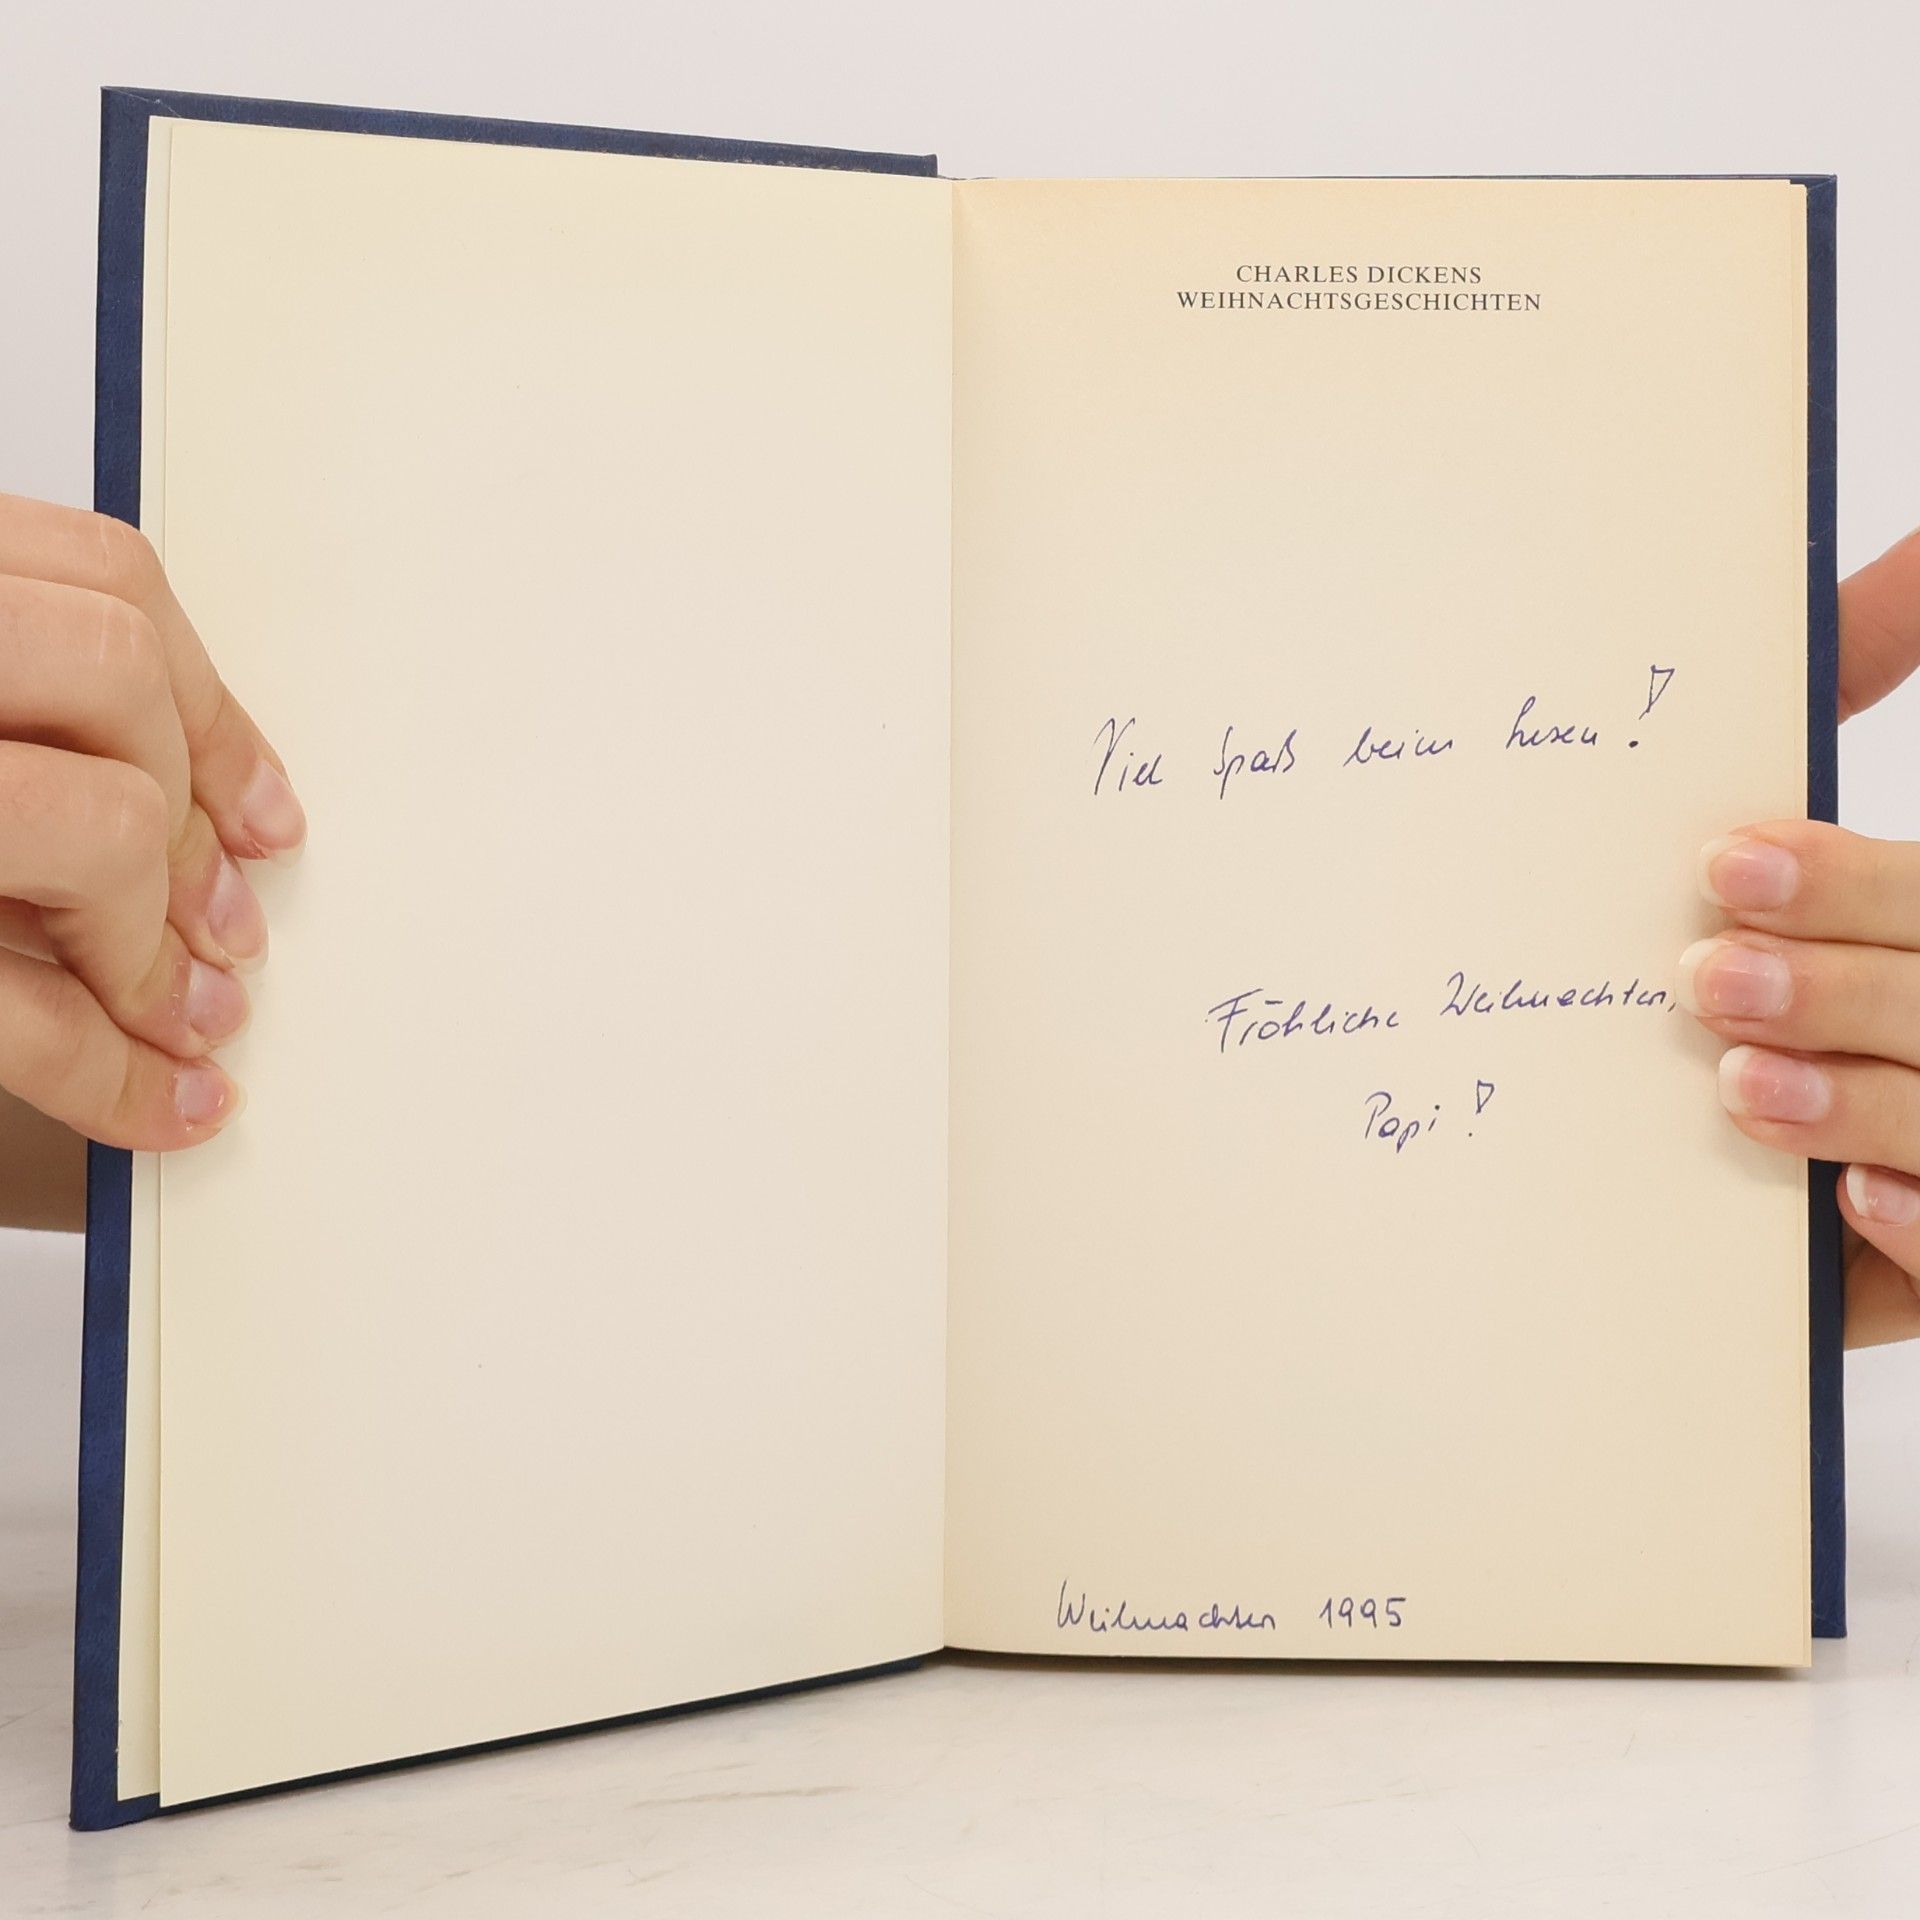 CHARLES DICKENS
WEIHNACHTSGESCHICHTEN
Viel Spaß beim Lesen!
Fröhliche Weihnachten,
Papi!
Weihnachten 1995